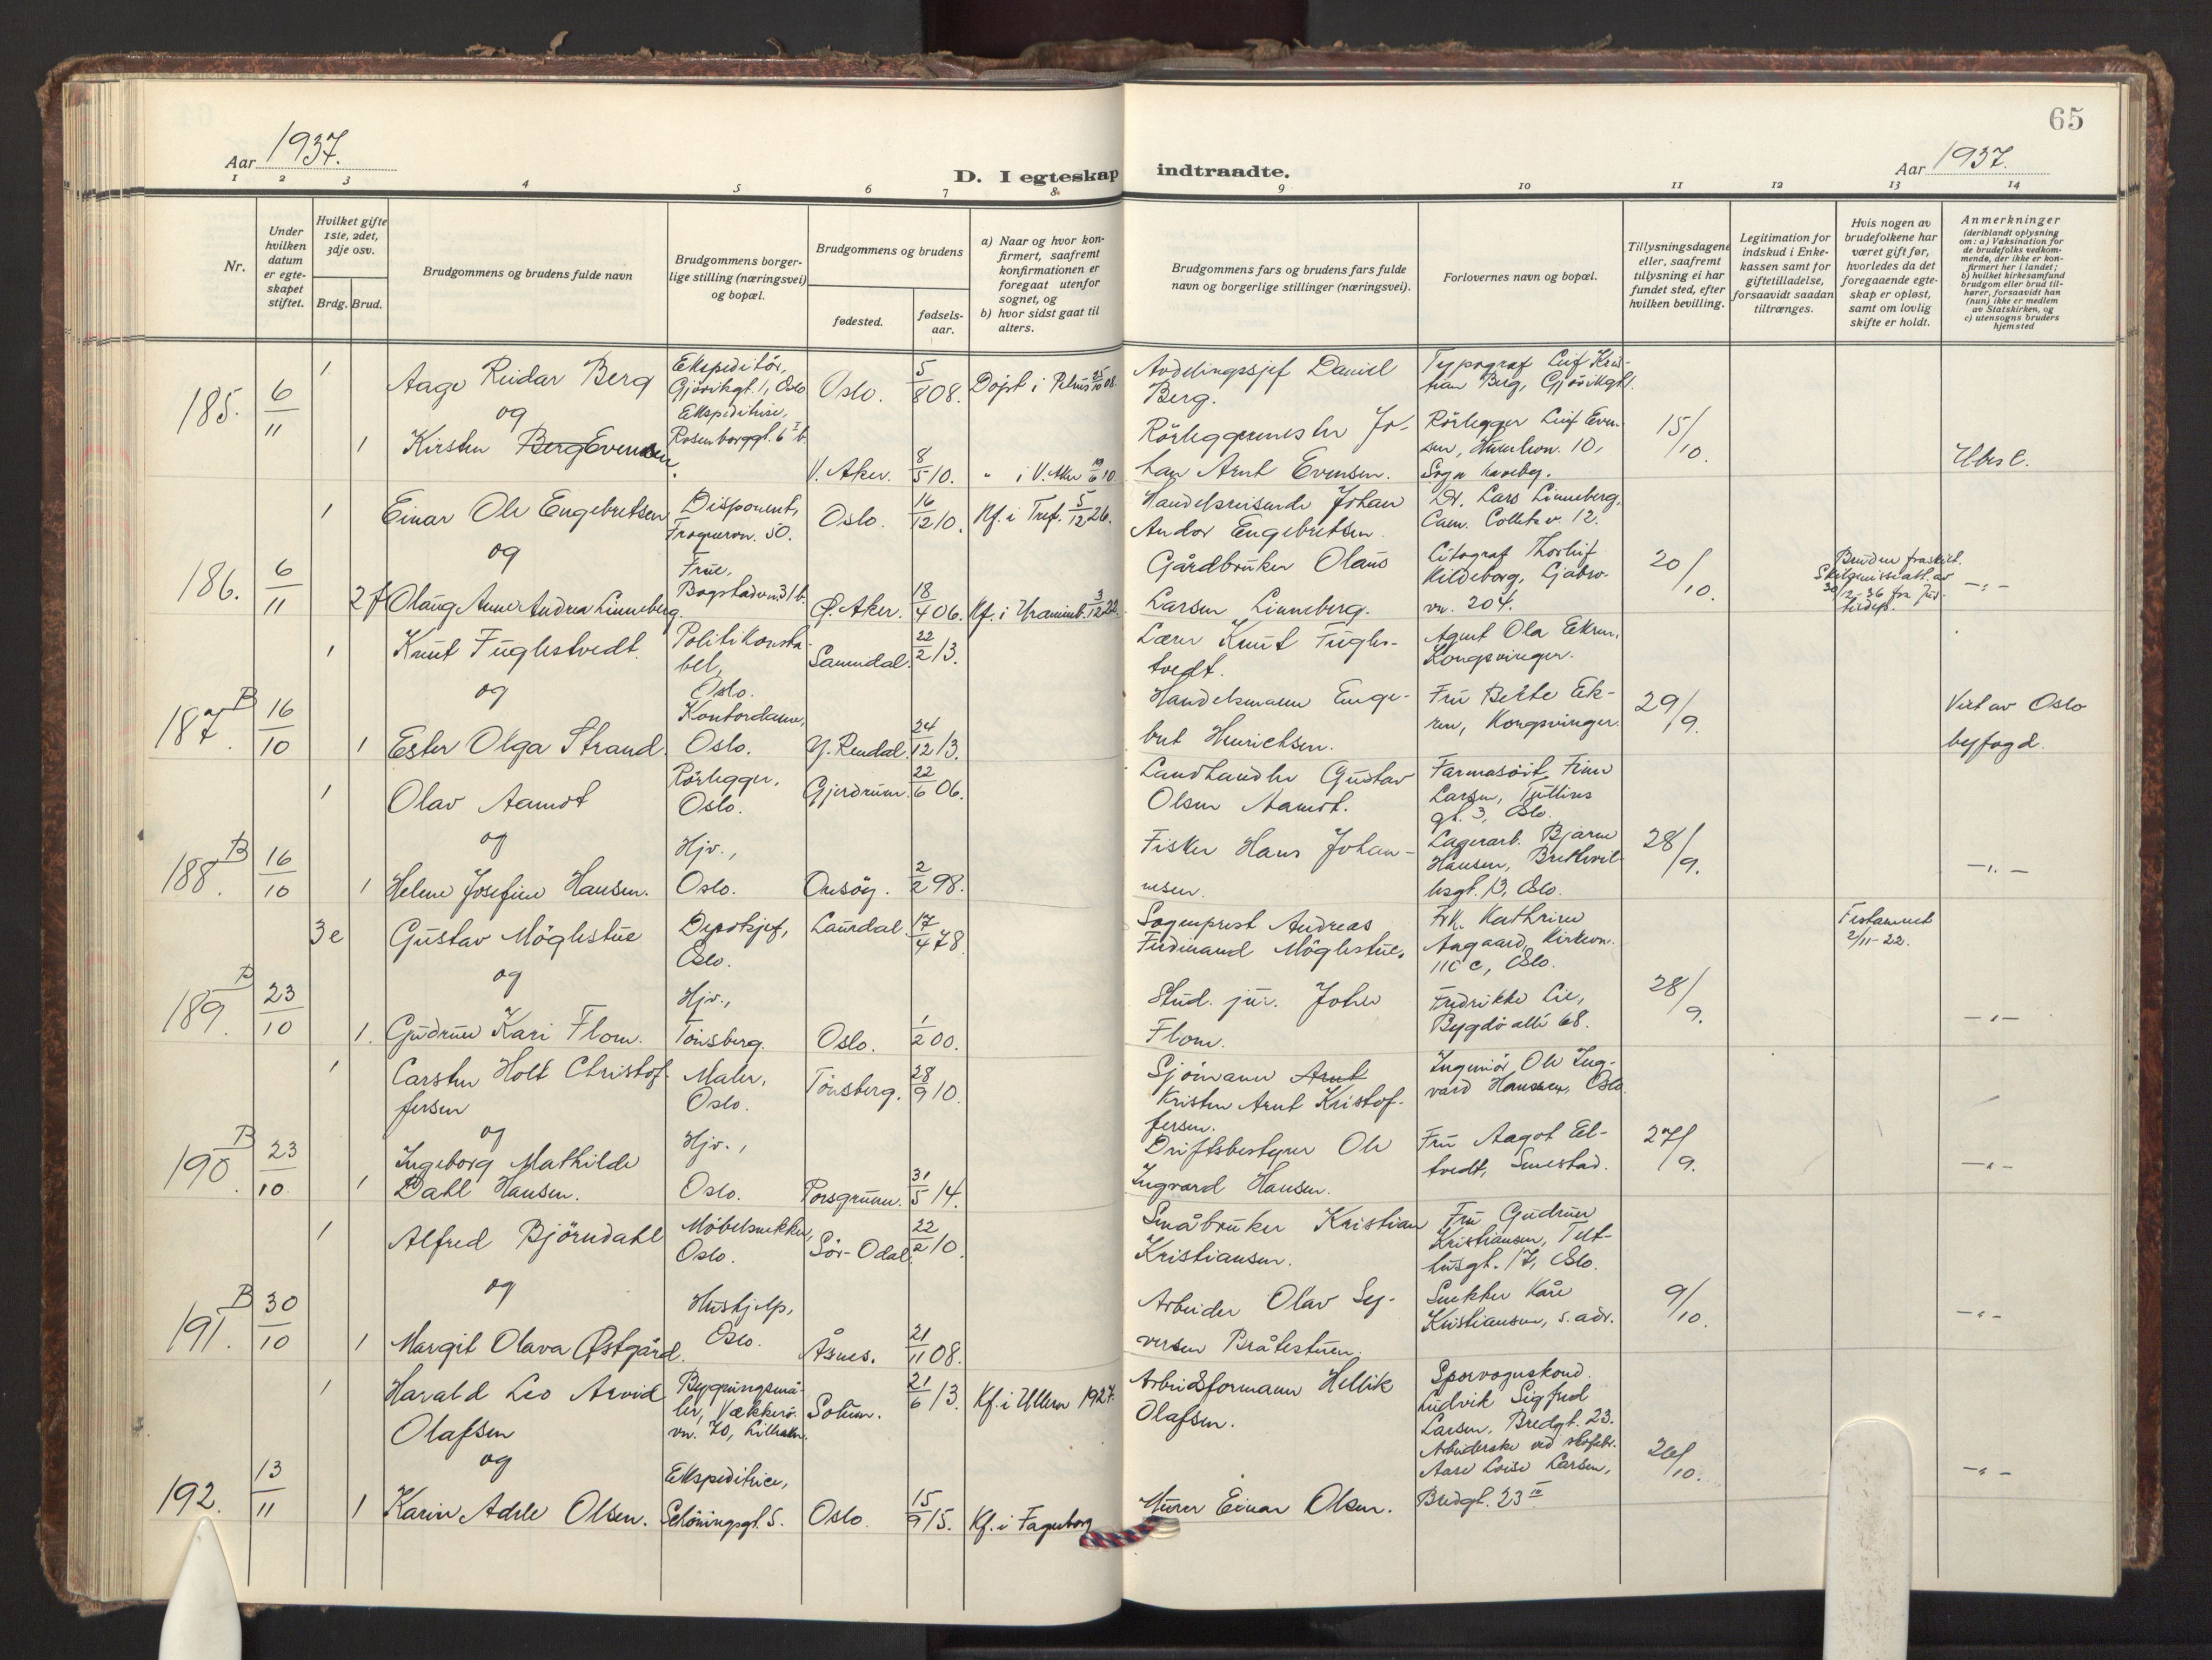 65
Aar 1937.
D. I egteskap indtraadte.
Aar 1937.
1 2 3 4 5 6 7 8 9 10 11 12 13 14
Nr.
Under hvilken datum er egteskapet stiftet.
Hvilket gifte 1ste, 2det, 3dje osv.
Brdg. Brud.
Brudgommens og brudens fulde navn
Brudgommens borgerlige stilling (næringsvei) og bopæl.
Brudgommens og brudens
fødested.
fødselsaar.
a) Naar og hvor konfirmert, saafremt konfirmationen er foregaat utenfor sognet, og
b) hvor sidst gaat til alters.
Brudgommens fars og brudens fars fulde navn og borgerlige stillinger (næringsvei).
Forlovernes navn og bopæl.
Tillysningsdagene eller, saafremt tillysning ei har fundet sted, efter hvilken bevilling.
Legitimation for indskud i Enkekassen samt for giftetilladelse, forsaavidt saadan tiltrænges.
Hvis nogen av brudefolkene har været gift før, hvorledes da det foregaaende egteskap er opløst, samt om lovlig skifte er holdt.
Anmerkninger (deriblandt oplysning om: a) Vaksination for de brudefolks vedkommende, der ikke er konfirmert her i landet; b) hvilket kirkesamfund brudgom eller brud tilhører, forsaavidt han (hun) ikke er medlem av Statskirken, og c) utensogns bruders hjemsted
185. 6/11
1 Aage Reidar Berg
Ekspeditør, Gjøvikgt. 1, Oslo
Oslo. 5/8 08. Døpt i Petrus 25/10 08.
Avdelingssjef Daniel Berg.
Typograf Leif Kristian Berg, Gjøvikgt 1.
og
1 Kirsten Berg Evensen.
Ekspeditrise, Rosenborggt. 6 I b.
V. Aker. 8/5 10. " i V. Aker 19/6 10.
Rørleggermester Johan Arnt Evensen.
Rørlegger Leif Evensen, 10, Sogn haveby.
15/10.
186. 6/11
1 Einar Ole Engebretsen
Disponent, Frognervn. 50.
Oslo. 16/12 10. Kf. i Tref. 5/12 26.
Handelsreisende Johan Andor Engebretsen.
Dr. Lars Linneberg, Cam. Colletsv. 12.
og
2 f Olaug Anne Andrea Linneberg.
Frue, Bogstadvn. 31 b.
Ø. Aker. 18/4 06. Kf. i Uranienb. 3/12 22.
Gårdbruker Olaus Larsen Linneberg.
Litograf Thorleif Kildeborg, Ljabrovn. 204.
20/10.
Bruden fraskilt. Skilsmisseatt. av 30/12-36 fra justisdep.
-"-
187. B 16/10
1 Knut Fuglestvedt.
Politikonstabel, Oslo.
22/2 13.
Lærer Knut Fuglestvedt.
Agent Ola Ekren, Kongsvinger.
og
1 Ester Olga Strand.
Kontordame, Oslo.
Y. Rendal. 24/12 13.
Handelsmann Engebret Henrichsen.
Fru Berte Ekren, Kongsvinger.
29/9.
Viet av Oslo byfogd.
188. B 16/10
1 Olav Aamot
Rørlegger, Oslo.
Gjerdrum. 22/6 06.
Landhandler Gustav Olsen Aamot.
Farmasøit Finn Larsen, Tullinsgt. 3, Oslo.
og
1 Helene Josefine Hansen.
Hjv., Oslo.
Onsøy. 2/2 98.
Fisker Hans Johannesen.
Lagerarb. Bjarne Hansen, Brettevillesgt. 13, Oslo.
28/9.
-"-
189. B 23/10
3 e Gustav Møglestue
Depotsjef, Oslo.
Laurdal. 17/4 78.
Sogneprest Andreas Ferdinand Møglestue.
Frk. Kathrine Aagaard, Kirkevn. 110 c, Oslo.
Testament 2/11-22.
og
1. Gudrun Kari Flom.
Hjv., Tønsberg.
Oslo. 1/2 00.
Stud. jur. Johen Flom.
Fredrikke Lie, Bygdø allé 68.
28/9.
-"-
190. B 23/10
1 Carsten Holt Christoffersen
Maler, Oslo.
Tønsberg. 28/9 10.
Sjømann Arnt Kristen Arnt Kristoffersen.
Ingeniør Ole Ingvard Hansen, Oslo.
og
1 Ingeborg Mathilde Dahl Hansen.
Hjv., Oslo.
Porsgrunn. 31/5 14.
Driftsbestyrer Ole Ingvard Hansen.
Fru Aagot Eltvedt, Smestad.
27/9.
-"-
191. B 30/10
1 Alfred Bjørndahl
Møbelsnekker, Oslo.
Sør-Odal. 22/2 10.
Småbruker Kristian Kristiansen.
Fru Gudrun Kristiansen, Telthusgt. 17, Oslo.
og
1 Margit Olava Østgård.
Hushjelp, Oslo.
Åsnes. 21/11 08.
Arbeider Olav Syversen Bråtestuen.
Snekker Kåre Kristiansen, s. adr.
9/10.
-"-
192. 13/11
1 Harald Leo Arvid Olafsen
Bygningsmaler, Vækkerøvn. 70, Lilleaker.
Solum. 21/6 13. Kf. i Ullern 1927.
Arbeidsformann Hellik Olafsen.
Sporvognskond. Ludvik Sigfred Larsen, Bredgt. 23.
og
1 Karin Adele Olsen.
Ekspeditrice, Schøningsgt. 5.
Oslo. 15/9 15. Kf. i Fagerborg
Murer Einar Olsen.
Arbeiderske ved skofabr. Aase Loise Larsen, Bredgt. 23 IV
26/10.
-"-